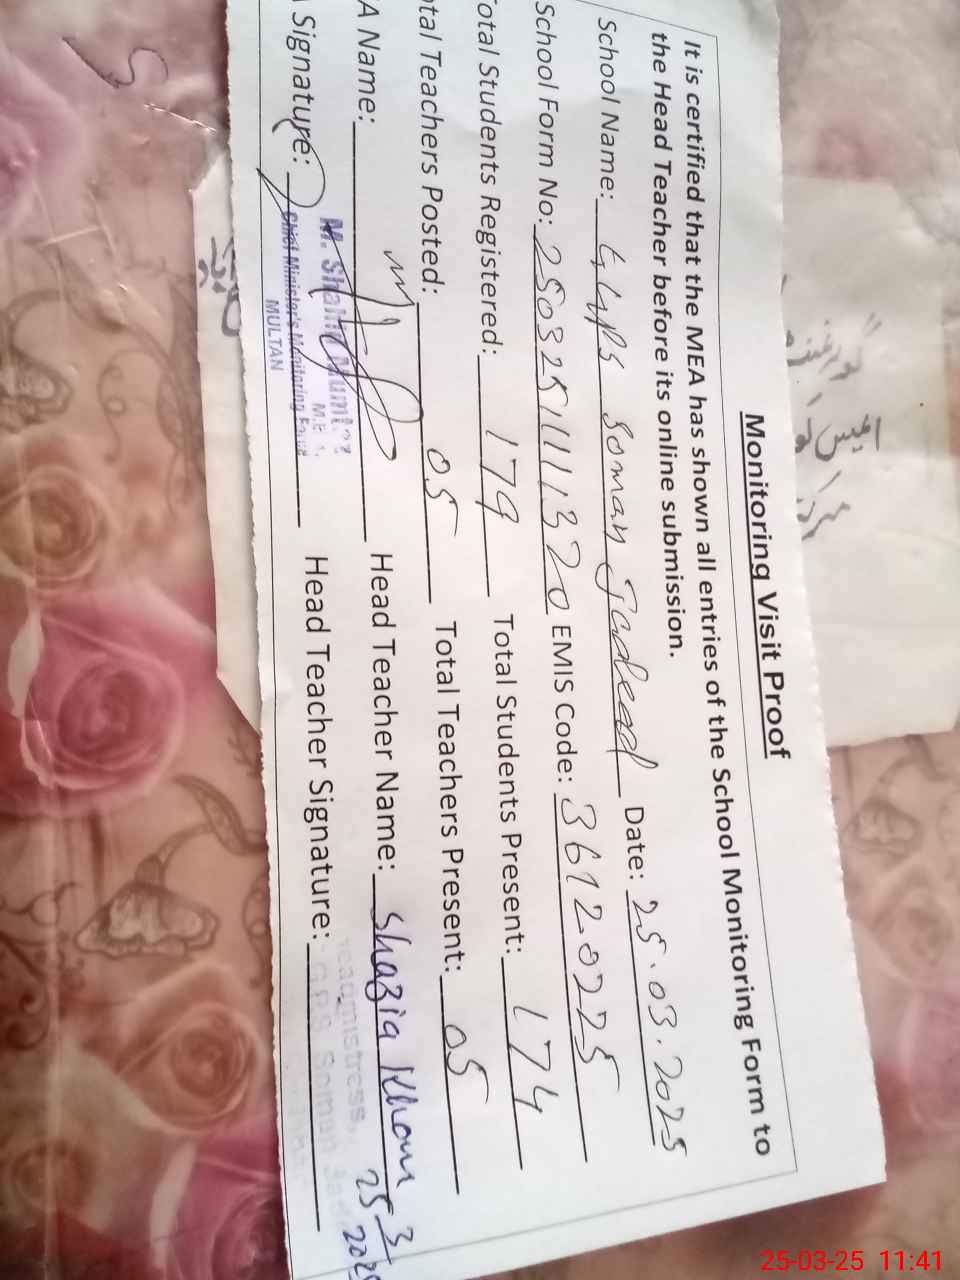 Monitoring Visit Proof
It is certified that the MEA has shown all entries of the School Monitoring Form to
the Head Teacher before its online submission.
School Name: GGPS Soman Jadeed Date: 25.03.2025
School Form No: 25032511111320 EMIS Code: 36120225
otal Students Registered: 179 Total Students Present: 174
otal Teachers Posted: 05 Total Teachers Present: 05
A Name: Head Teacher Name: Shazia Khan
Signature: Head Teacher Signature: 25 3
M.
Chief Minister's Monitoring Force
MULTAN
Headmistress,
Soman
25-03-25 11:41